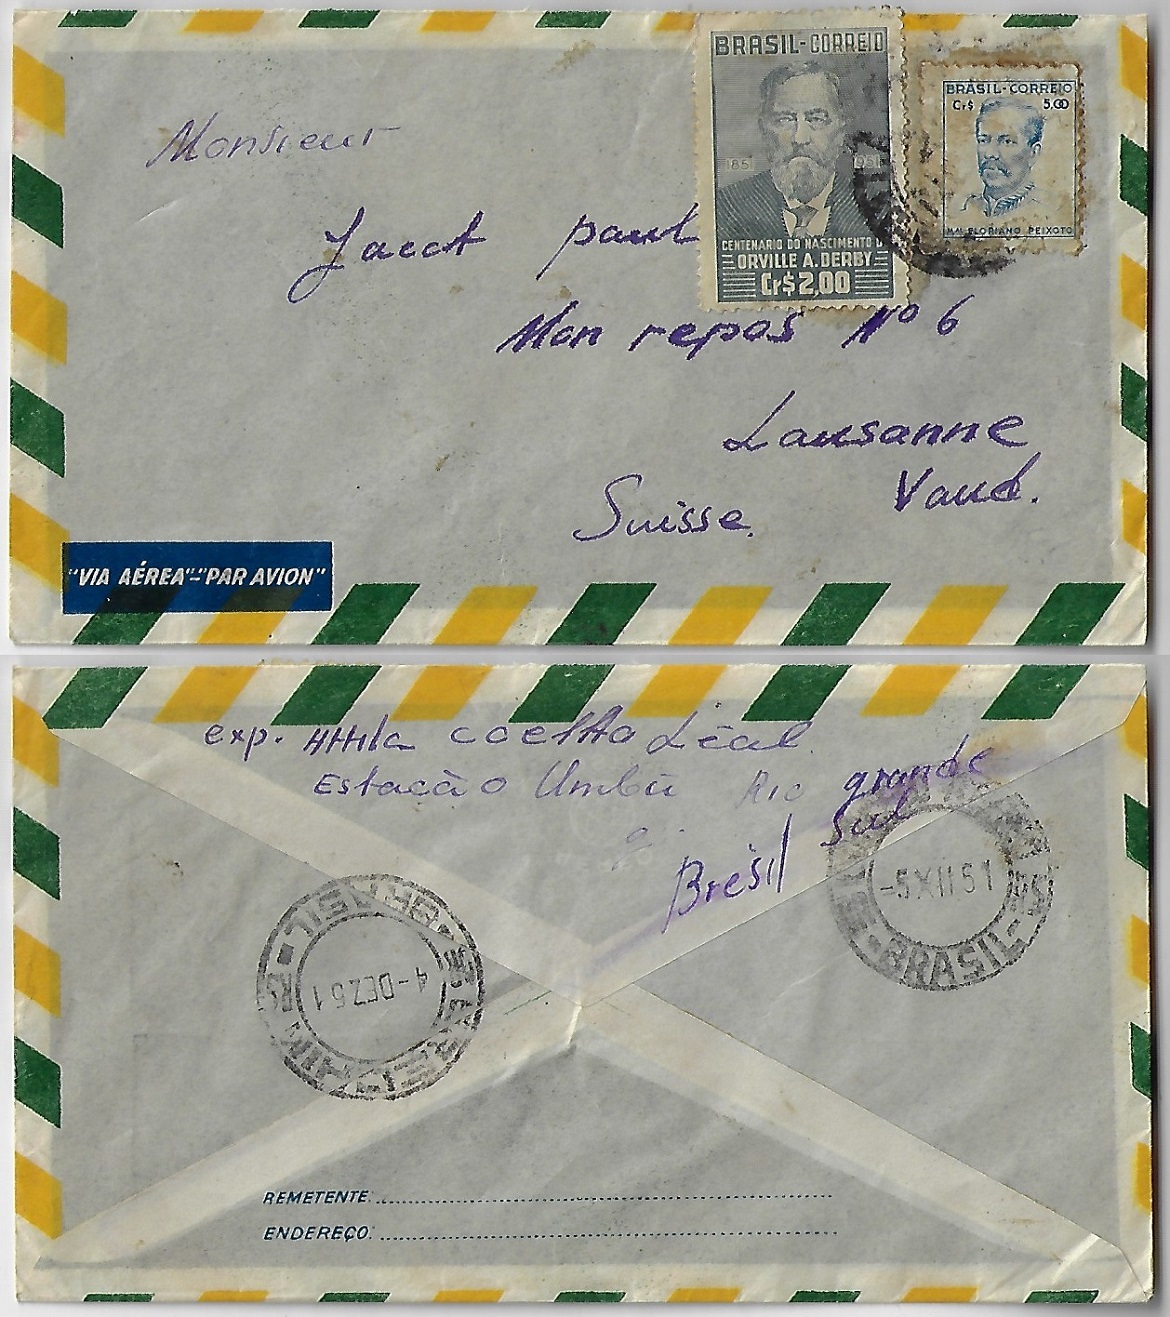 BRASIL-CORREIO
185 1951
CENTENARIO DO NASCIMENTO D
ORVILLE A. DERBY
Cr$ 2,00
BRASIL-CORREIO
Cr$ 5,00
MAL FLORIANO PEIXOTO
Monsieur
Jacct paul
Mon repos Nº 6
Lausanne
Vaud.
Suisse.
"VIA AÉREA"-"PAR AVION"
exp. Attila coelho Léal
Estacão Umbú Rio grande
Sul
Brésil
-5XII51
BRASIL
BRASIL
RS
4-DEZ51
REMETENTE:
ENDEREÇO: